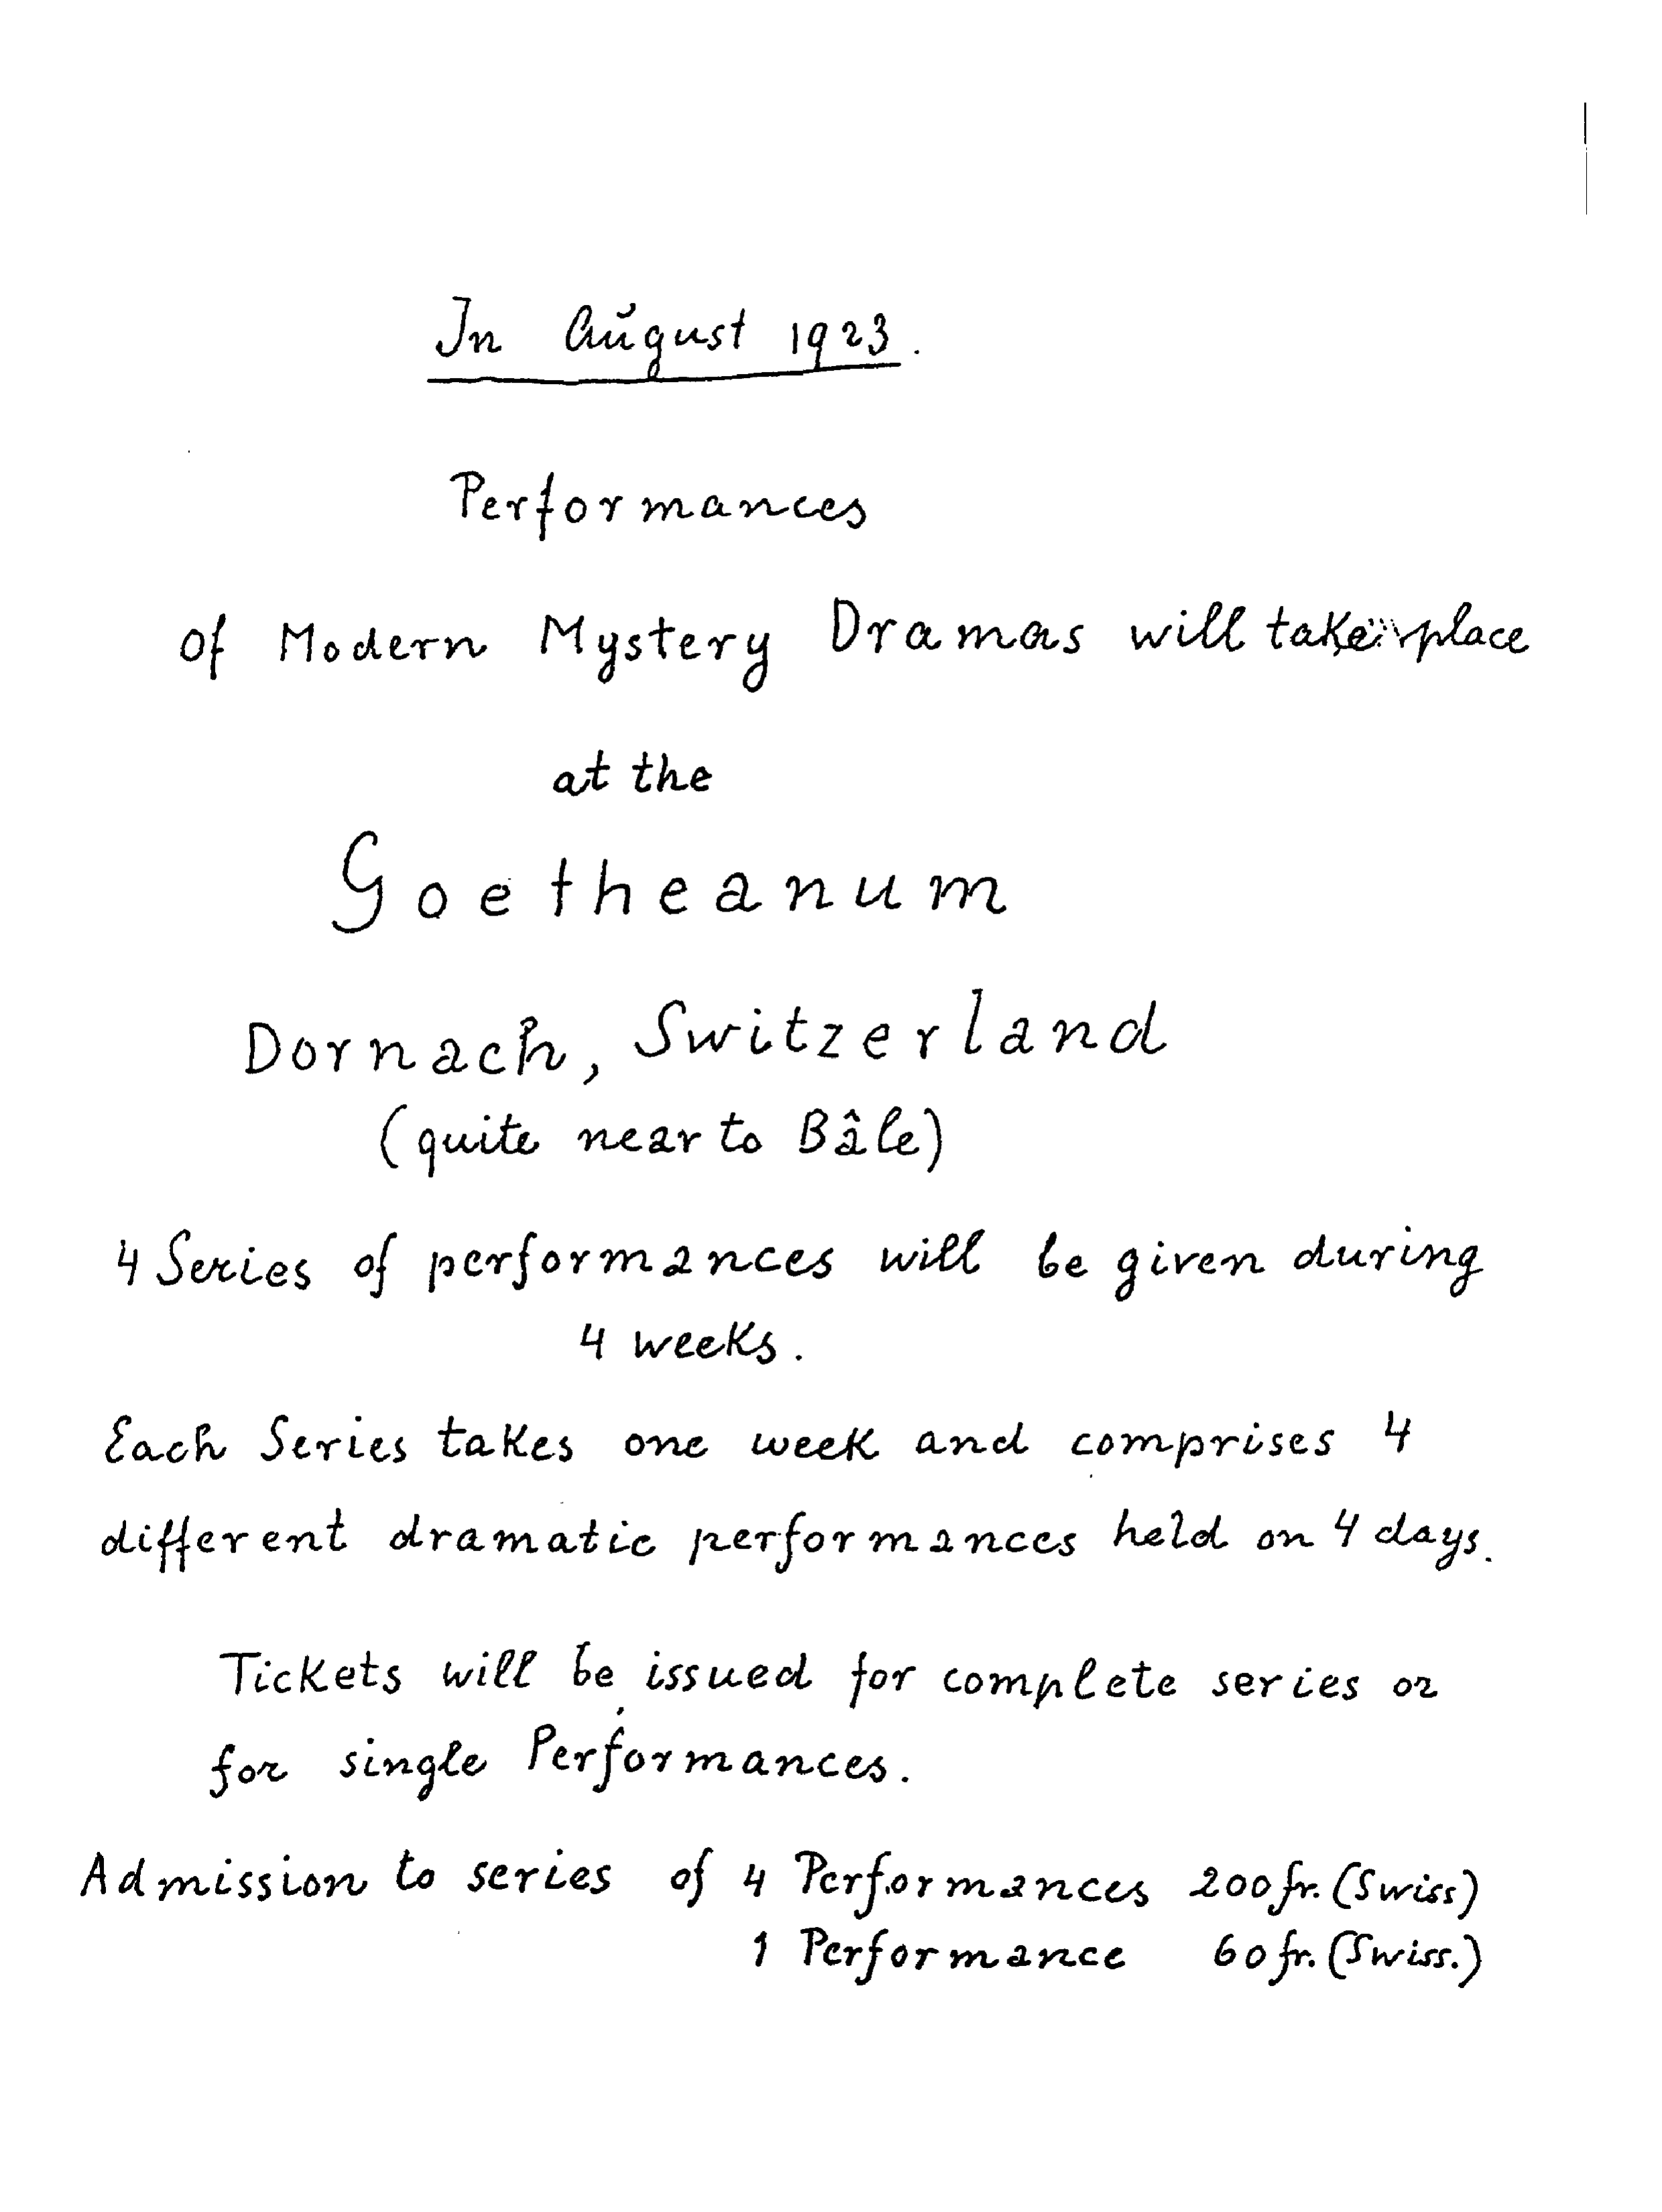 In August 1923.
Performances
of Modern Mystery Dramas will take place
at the
Goetheanum
Dornach, Switzerland
(quite near to Bâle)
4 Series of performances will be given during
4 weeks.
Each Series takes one week and comprises 4
different dramatic performances held on 4 days.
Tickets will be issued for complete series or
for single Performances.
Admission to series of 4 Performances 200 fr. (Swiss)
1 Performance 60 fr. (Swiss.)